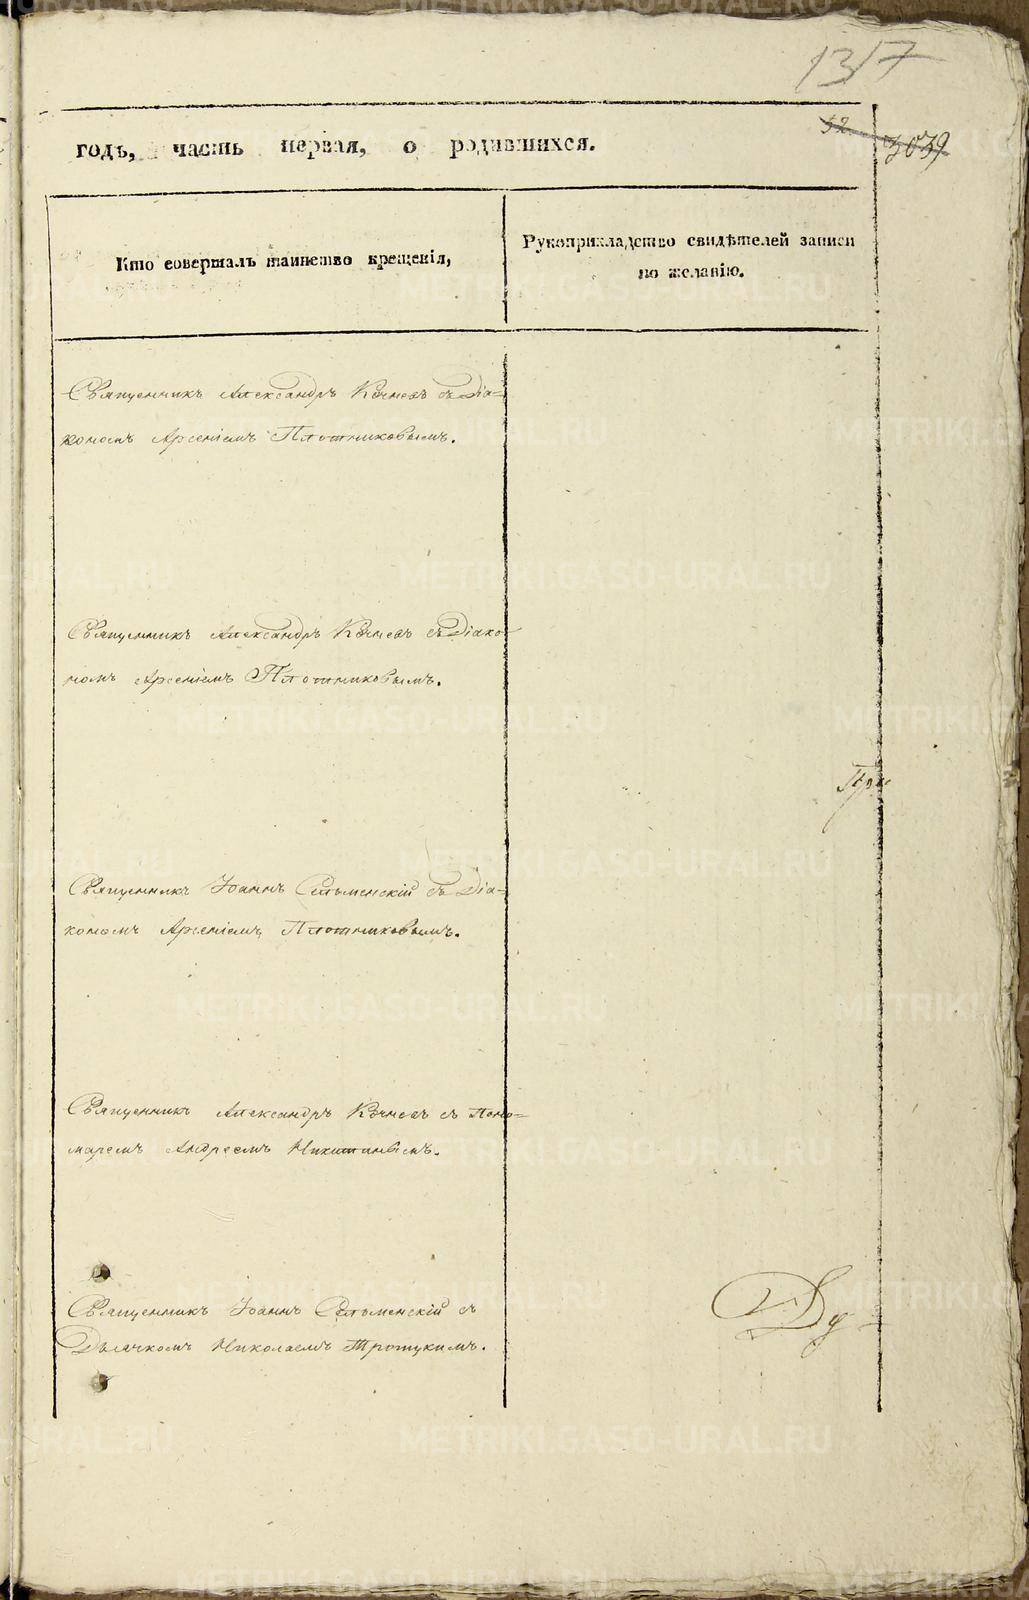 1317
52
3039
годъ, часть первая, о родившихся.
Кто совершалъ таинство крещенія,
Рукоприкладство свидѣтелей записи
по желанію.
Священникъ Александръ Кочневъ съ Діа-
кономъ Арсеніемъ Плотниковымъ.
Священникъ Александръ Кочневъ съ Діако-
номъ Арсеніемъ Плотниковымъ.
При
Священникъ Іоаннъ Сельменскій съ Діа-
кономъ Арсеніемъ Плотниковымъ.
Священникъ Александръ Кочневъ съ Поно-
маремъ Андреемъ
Священникъ Іоаннъ Сельменскій съ
Дьячкомъ Николаемъ
METRIKI.GASO-URAL.RU